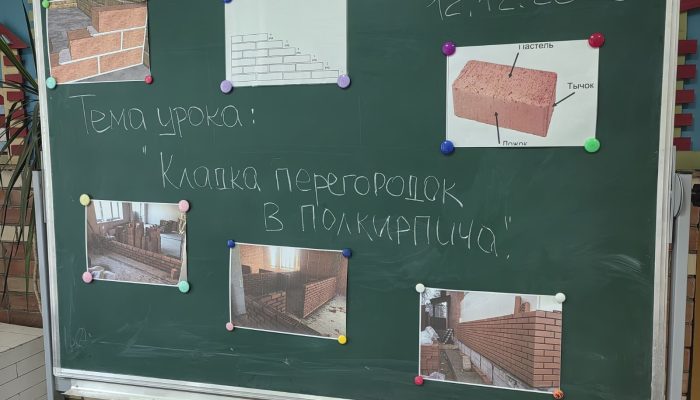 12.12.20
Пастель
Тычок
Ложок
Тема урока:
"Кладка перегородок
в полкирпича".